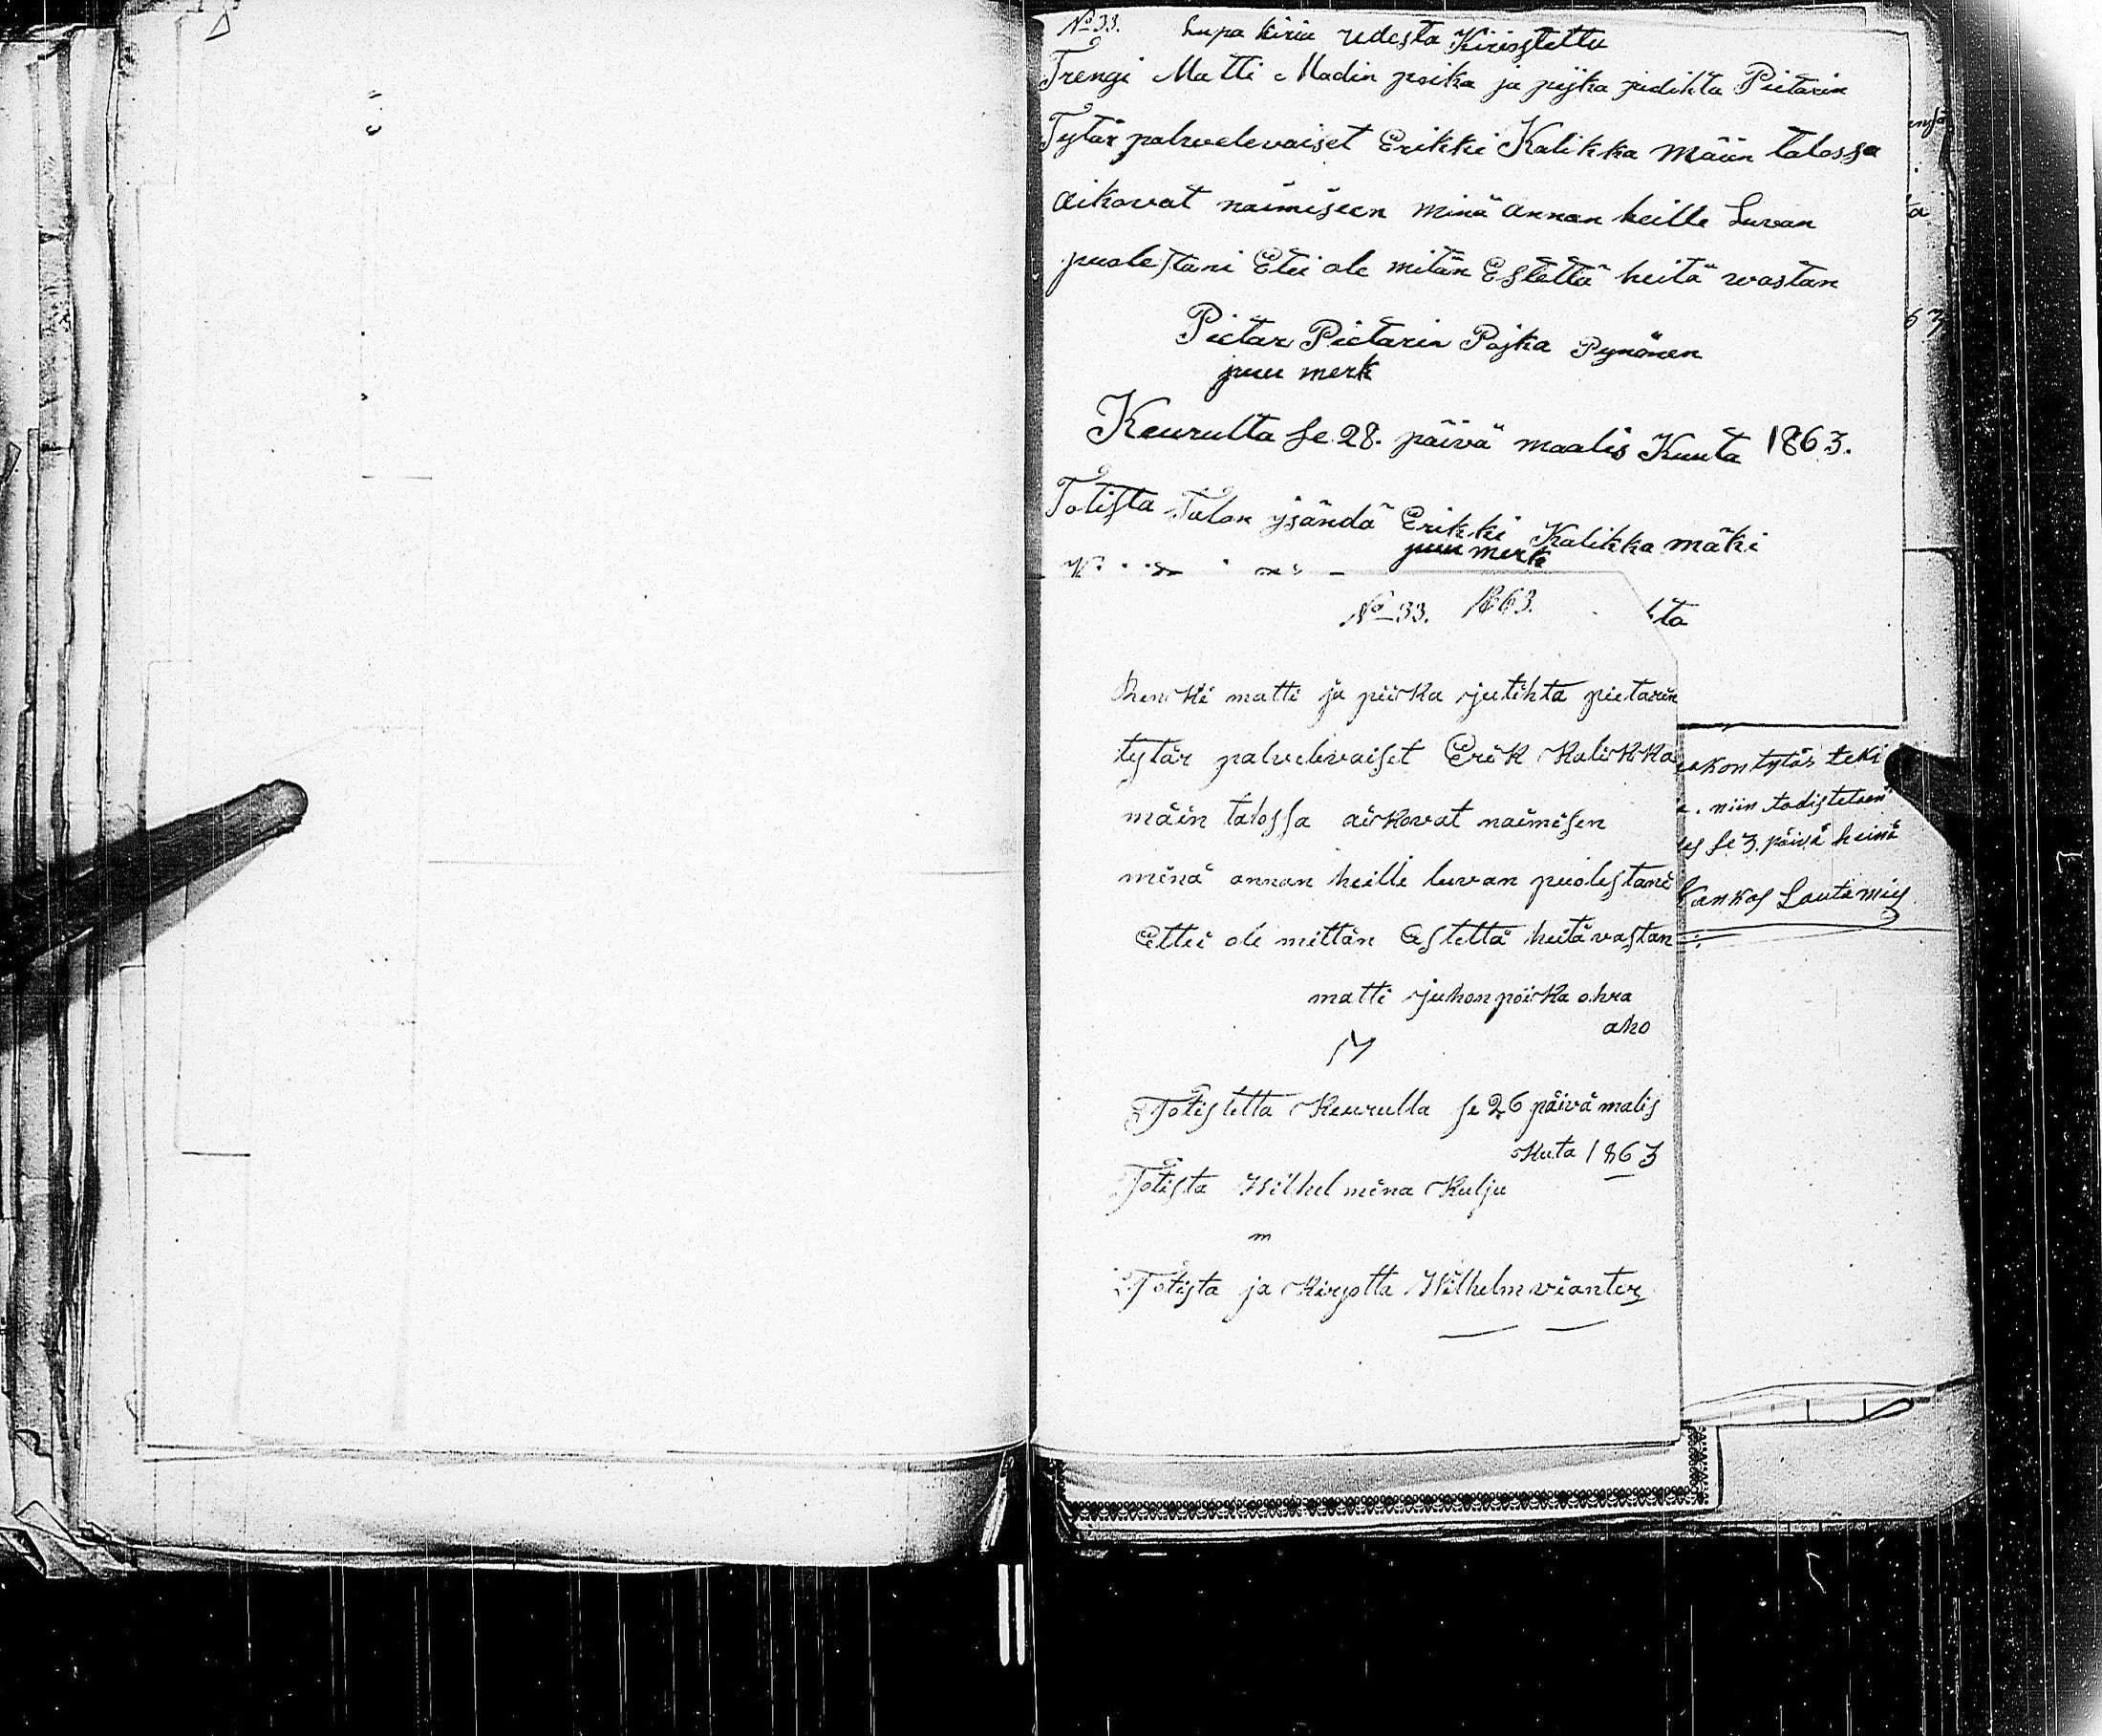 No 33. Lupa kiria udesta Kirisstettu
Trengi Matti Madin poika ja pijka judihta Pietarin
Tytär palwelevaiset Erikki Kalikka Mäin talossa
aikovat naimiseen minä annan heille Luvan
puolestani Etei ole mitän Estettä heitä wastan
Pietar Pietarin Pojka Pynönen
puu merk
Keurulta se 28. päivä maalis Kuuta 1863.
Totista Talon ysändä Erikki Kalikka mäki
puu merk
No 33. 1863.
ta
Renki matti ja piika jutihta pietarin
tytär palvelevaiset Erik Kalikka
mäin talossa aikovat naimisen
minä annan heille luvan puolestani
Ettei ole mittän Estettä heitä vastan
matti juhon poika ohra
aho
Totistetta Keurulla se 26 päivä malis
kuta 1863
Totista Wilhelmina Kulju
m
Totista ja Kirjotta Wilhelm vianter
kon tytär teki
niin todistetaen
se 3. päivä heinä
Kankas Lautamies
63